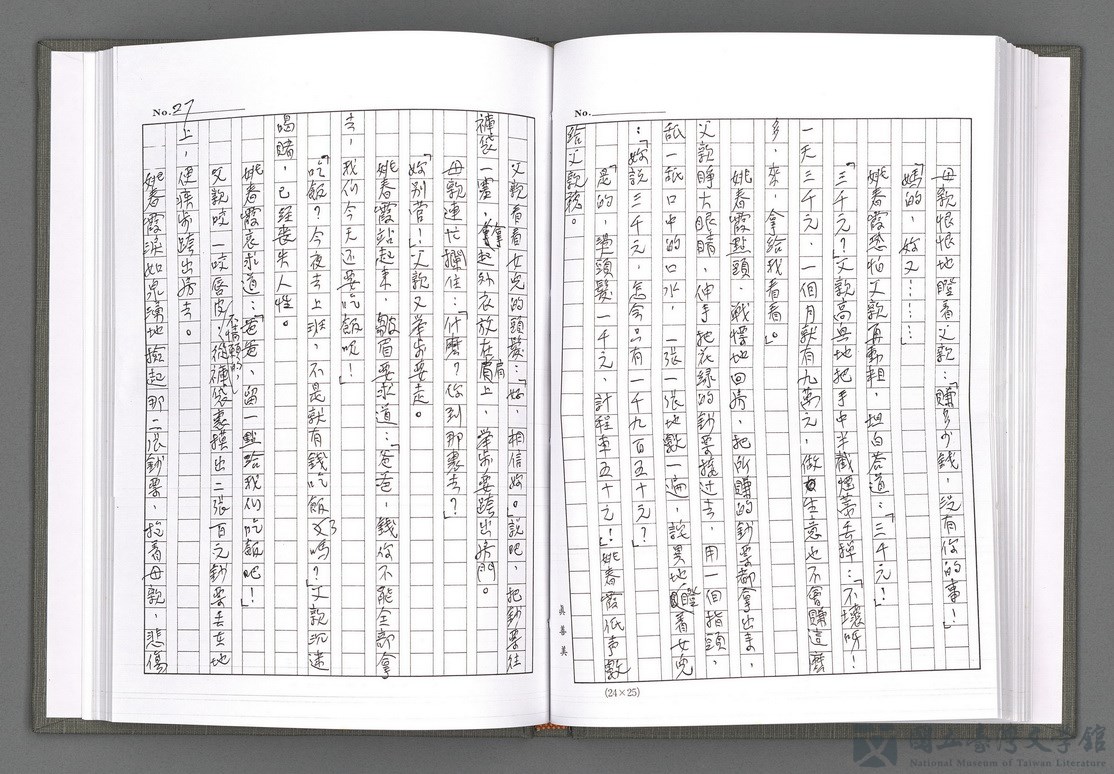 No.
母親恨恨地瞪着父親：「賺多少錢，沒有你的事！」
「媽的，你又………」
姚春霞恐怕父親再動粗，坦白答道：「三千元！」
「三千元？」父親高興地把手中半截煙蒂丢掉：「不壞呀！
一天三千元，一個月就有九萬元，做生意也不會賺這麼
多，來，拿給我看看。」
姚春霞點頭，戰慄地回房，把所賺的鈔票都拿出來，
父親睁大眼睛，伸手把衣綠的鈔票搶过去，用一個指頭，
舐一舐口中的口水，一張一張地數一遍，詫異地瞪着女兒
：「妳說三千元，怎会只有一千九百五十元？」
「是的，燙頭髮一千元，計程車五十元！」姚春霞低声數
給父親聽。
真善美
(24×25)
No. 27
父親看看女兒的頭髮：「好，相信妳。」說吧，把鈔票往
褲袋一塞，拿起外衣放在肩上，举步要跨出房門。
母親連忙攔住：「什麼？你到那裏去？」
「妳別管！」父親又举步要走。
姚春霞站起來，皺眉要求道：「爸爸，錢你不能全部拿
去，我们今天还要吃飯呢！」
「吃飯？今夜去上班，不是就有錢吃飯了嗎？」父親沉迷
喝賭，已經喪失人性。
姚春霞哀求道：「爸爸，留一點給我们吃飯吧！」
父親咬一咬唇皮，不情願的，從褲袋裏摸出二張百元鈔票丢在地
上，便疾步跨出房去。
姚春霞淚如泉湧地撿起那二張鈔票，抱着母親，悲傷
國立臺灣文學館
National Museum of Taiwan Literature